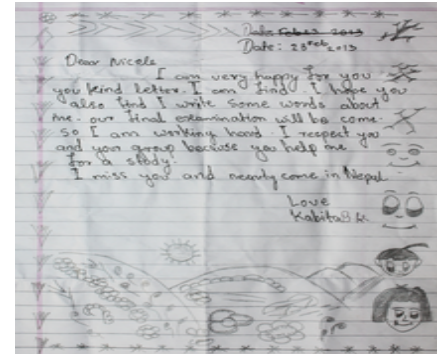 Date: Feb 23 2013
Date: 23 Feb 2013
Dear Nicole
I am very happy for you
you kind letter. I am find. I hope you
also find I write some words about
me. our final examination will be come.
So I am working hand. I respect you
and your group because you help me
for a study.
I miss you and nearly come in Nepal.
Love
Kabita B.K.